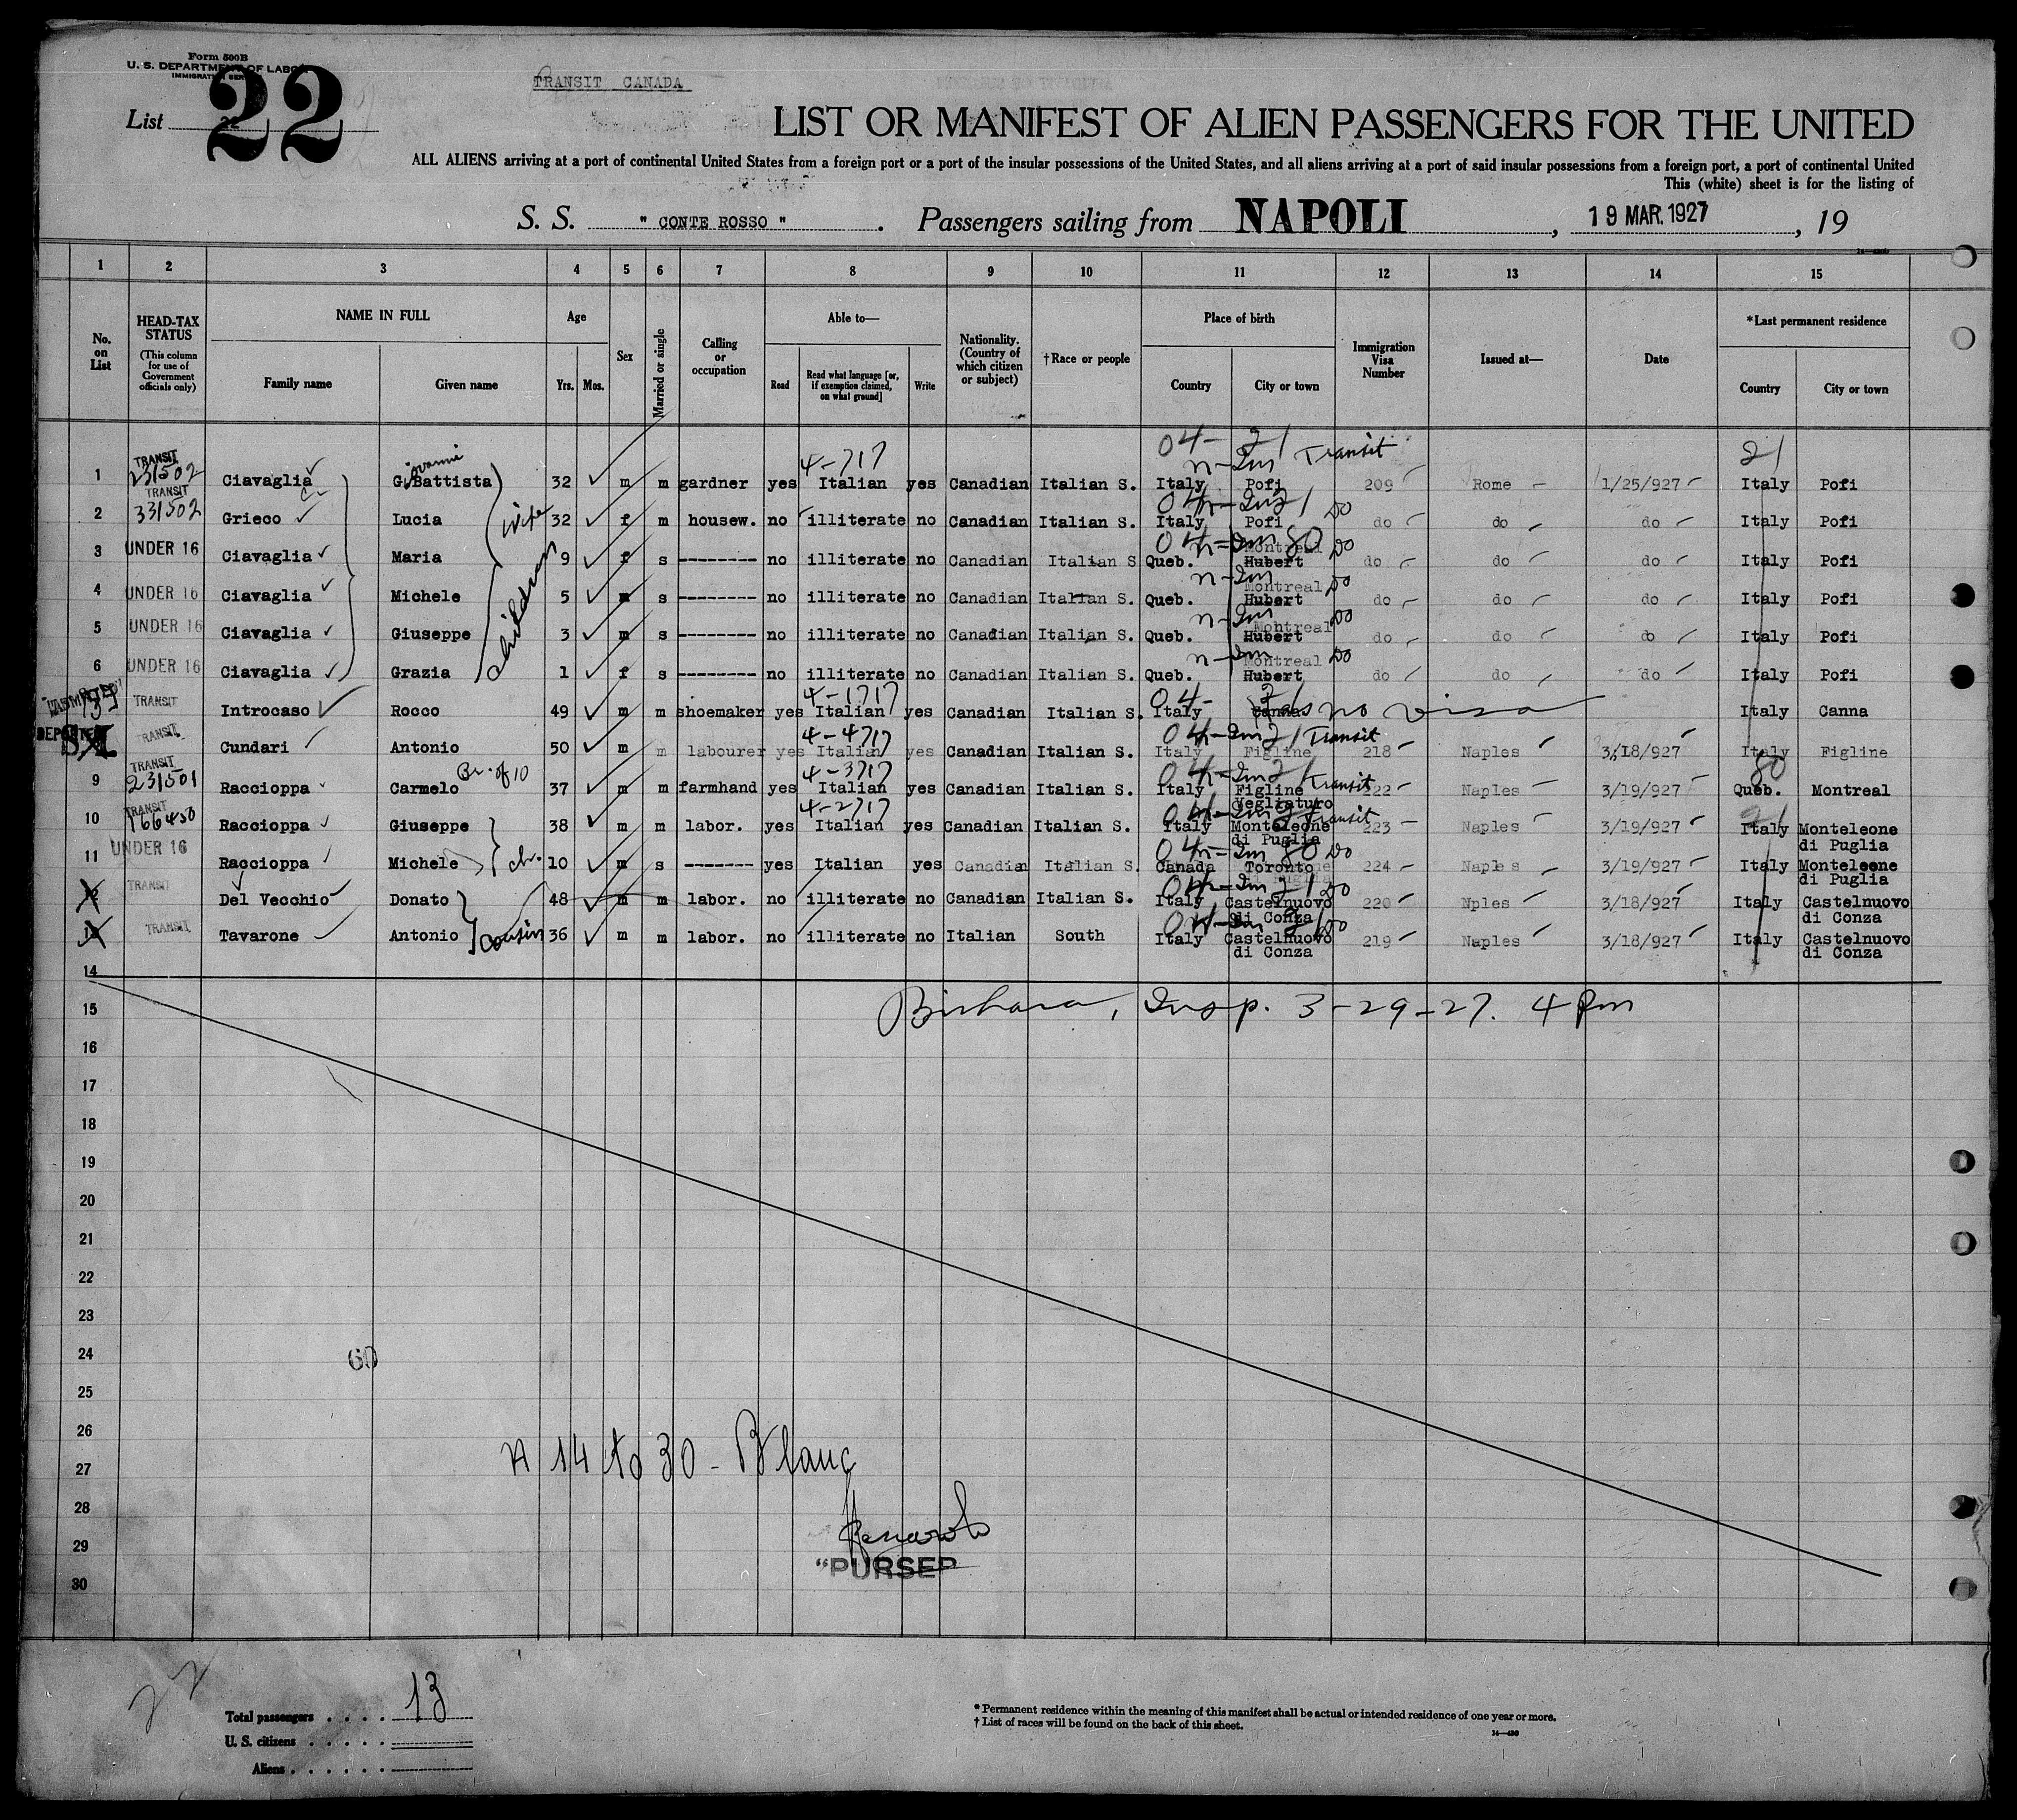 Form 500B
U. S. DEPARTMENT OF LABOR
IMMIGRATION SERVICE
TRANSIT CANADA
List 22
22
LIST OR MANIFEST OF ALIEN PASSENGERS FOR THE UNITED
ALL ALIENS arriving at a port of continental United States from a foreign port or a port of the insular possessions of the United States, and all aliens arriving at a port of said insular possessions from a foreign port, a port of continental United
This (white) sheet is for the listing of
S. S. " CONTE ROSSO " . Passengers sailing from NAPOLI , 19 MAR. 1927 , 19
1 2 3 4 5 6 7 8 9 10 11 12 13 14 15
No. on List
HEAD-TAX STATUS (This column for use of Government officials only)
NAME IN FULL
Family name Given name
Age
Yrs. Mos.
Sex
Married or single
Calling or occupation
Able to—
Read Read what language [or, if exemption claimed, on what ground] Write
Nationality. (Country of which citizen or subject)
†Race or people
Place of birth
Country City or town
Immigration Visa Number
Issued at—
Date
*Last permanent residence
Country City or town
04- 21 Transit 21
1 TRANSIT 231502 Ciavaglia Giovanni G. Battista 32 m m gardner yes 4-717 Italian yes Canadian Italian S. Italy Pofi 209 Rome 1/25/927 Italy Pofi
2 TRANSIT 331502 Grieco Lucia wife 32 f m housew. no illiterate no Canadian Italian S. Italy Pofi do do do do Italy Pofi
3 UNDER 16 Ciavaglia Maria children 9 f s -------- no illiterate no Canadian Italian S Queb. Montreal Hubert do do do do Italy Pofi
4 UNDER 16 Ciavaglia Michele 5 m s -------- no illiterate no Canadian Italian S. Queb. Montreal Hubert do do do do Italy Pofi
5 UNDER 16 Ciavaglia Giuseppe 3 m s -------- no illiterate no Canadian Italian S. Queb. Montreal Hubert do do do do Italy Pofi
6 UNDER 16 Ciavaglia Grazia 1 f s -------- no illiterate no Canadian Italian S. Queb. Montreal Hubert do do do do Italy Pofi
TRANSIT Introcaso Rocco 49 m m shoemaker yes 4-1717 Italian yes Canadian Italian S. 04- 21 Italy Canna has no visa Italy Canna
DEPORTED TRANSIT Cundari Antonio 50 m m labourer yes 4-4717 Italian yes Canadian Italian S. Italy Figline Transit 218 Naples 3/18/927 Italy Figline
9 TRANSIT 231501 Raccioppa Carmelo Br. of 10 37 m m farmhand yes 4-3717 Italian yes Canadian Italian S. Italy Figline Vegliaturo Transit 222 Naples 3/19/927 80 Queb. Montreal
10 TRANSIT 166450 Raccioppa Giuseppe 38 m m labor. yes 4-2717 Italian yes Canadian Italian S. Italy Monteleone di Puglia Transit 223 Naples 3/19/927 21 Italy Monteleone di Puglia
11 UNDER 16 Raccioppa Michele ch. 10 m s ------- yes Italian yes Canadian Italian S. 80 Canada Toronto do 224 Naples 3/19/927 Italy Monteleone di Puglia
12 TRANSIT Del Vecchio Donato 48 m m labor. no illiterate no Canadian Italian S. Italy Castelnuovo di Conza do 220 Nples 3/18/927 Italy Castelnuovo di Conza
13 TRANSIT Tavarone Antonio cousin 36 m m labor. no illiterate no Italian South Italy Castelnuovo di Conza do 219 Naples 3/18/927 Italy Castelnuovo di Conza
14
15 Insp. 3-29-27. 4 Pm
16
17
18
19
20
21
22
23
24
60
25
26
27 14 to 30 - Blanc
28
29
"PURSER
30
22
Total passengers . . . . 13
U. S. citizens . . . . .
Aliens . . . . . .
* Permanent residence within the meaning of this manifest shall be actual or intended residence of one year or more.
† List of races will be found on the back of this sheet.
14—430